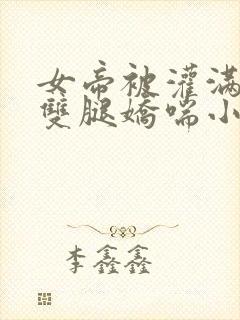 女帝被灌满
雙腿嬌喘小
李鑫鑫